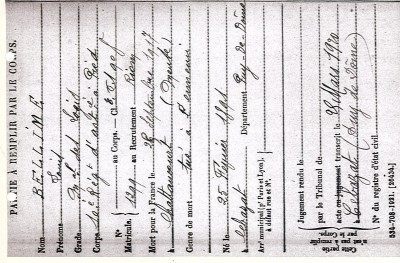 PARTIE À REMPLIR PAR LE CORPS.
Nom
Prénoms Louis
Grade Mal des Logis
Corps
N°
Matricule.
au Corps. — Cl
1299 au Recrutement Riom
Mort pour la France le 28 Septembre 1917
à Chattancourt (Meuse)
Genre de mort tué à l'ennemi
Né le 25 Février 1891
à Cébazat Département Puy-de-Dôme
Arrt municipal (pr Paris et Lyon),
à défaut rue et N°.
Cette partie
n'est pas à remplir
par le Corps.
Jugement rendu le
par le Tribunal de
acte ou jugement transcrit le 28 Mars 1920
à Cébazat (Puy de Dôme)
N° du registre d'état civil
534-708-1921. [26434.]